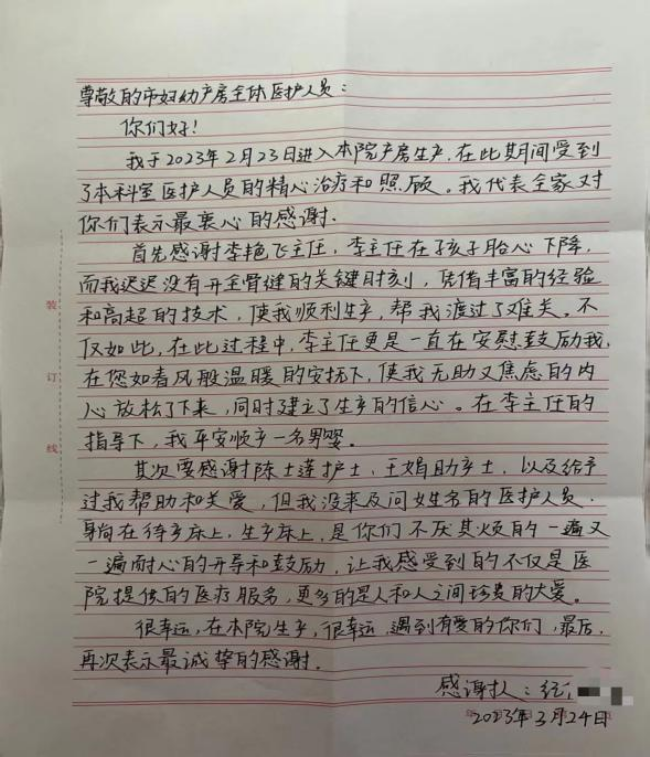 尊敬的市妇幼产房全体医护人员：
你们好！
我于2023年2月23日进入本院产房生产，在此期间受到
了本科室医护人员的精心治疗和照顾。我代表全家对
你们表示最衷心的感谢.
首先感谢李艳飞主任，李主任在孩子胎心下降，
而我迟迟没有开全骨缝的关键时刻，凭借丰富的经验
和高超的技术，使我顺利生产，帮我渡过了难关。不
仅如此，在此过程中，李主任更是一直在安慰鼓励我，
在您如春风般温暖的安抚下，使我无助又焦虑的内
心放松了下来，同时建立了生产的信心。在李主任的
指导下，我平安顺产一名男婴。
其次要感谢陈士莲护士，王娟助产士，以及给予
过我帮助和关爱，但我没来及问姓名的医护人员.
躺在待产床上，生产床上，是你们不厌其烦的一遍又
一遍耐心的开导和鼓励，让我感受到的不仅是医
院提供的医疗服务，更多的是人和人之间珍贵的大爱。
很幸运，在本院生产，很幸运，遇到有爱的你们，最后，
再次表示最诚挚的感谢.
感谢人：
2023年3月24日
装
订
线